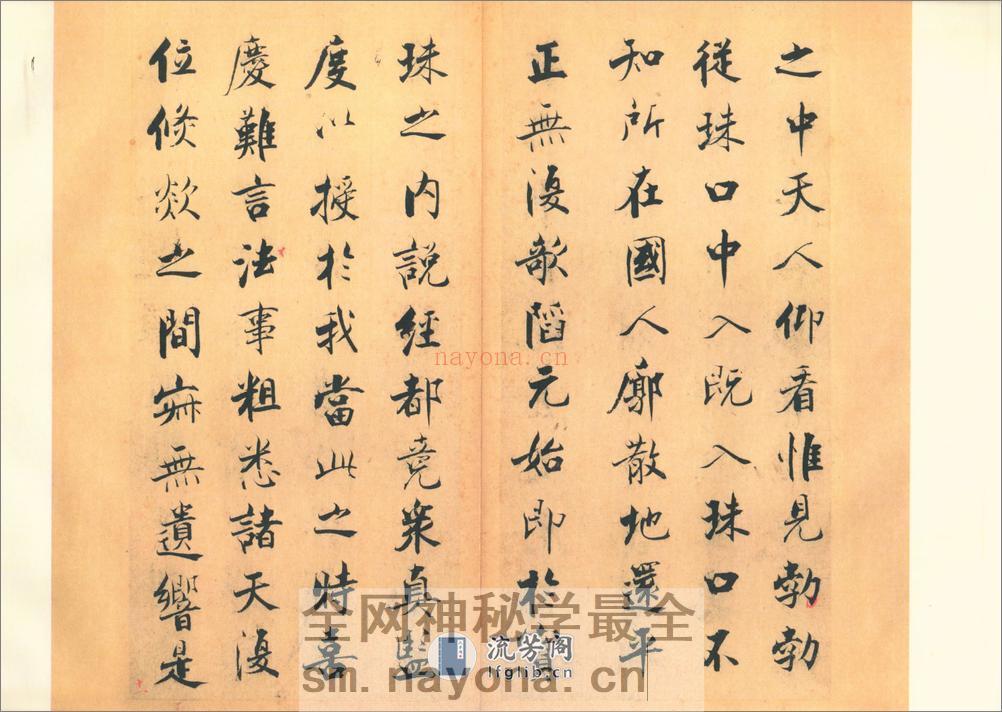 之中天人仰看惟見勃勃
從珠口中入既入珠口不
知所在國人廓散地還平
正無復欹陷元始即於寶
珠之内說經都竟衆真監
度以授於我當此之時喜
慶難言法事粗悉諸天復
位倏欻之間寂無遺響是
nayona.cn
全网神秘学最全
流芳阁
lfglib.cn
sm.nayona.cn